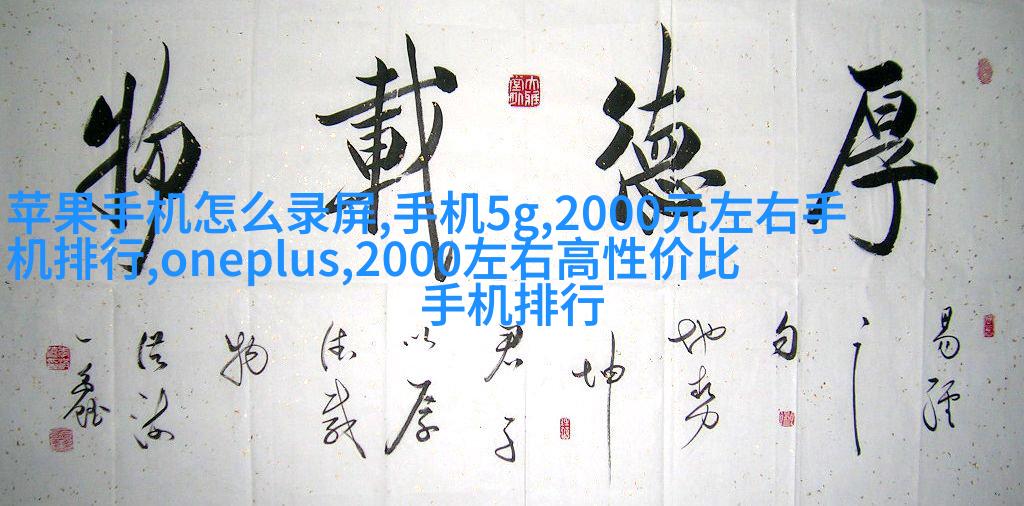 厚德載物
苹果手机怎么录屏,手机5g,2000元左右手
机排行,oneplus,2000左右高性价比
手机排行
易经
之
句
地势
坤
君子
以厚
德载
物